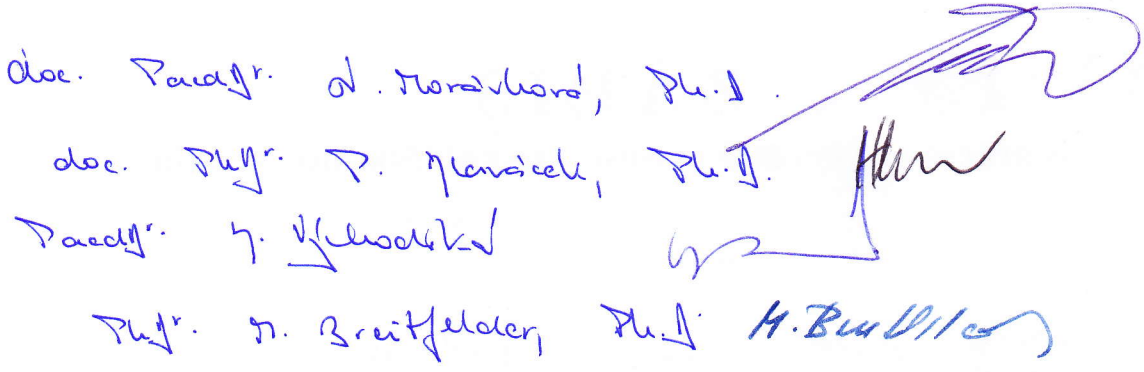 doc. PaedDr. N. Morávková, Ph.D.
doc. PhDr. P. Hlaváček, Ph.D.
PaedDr. J. Východská
PhDr. M. Breitfelder, Ph.D.